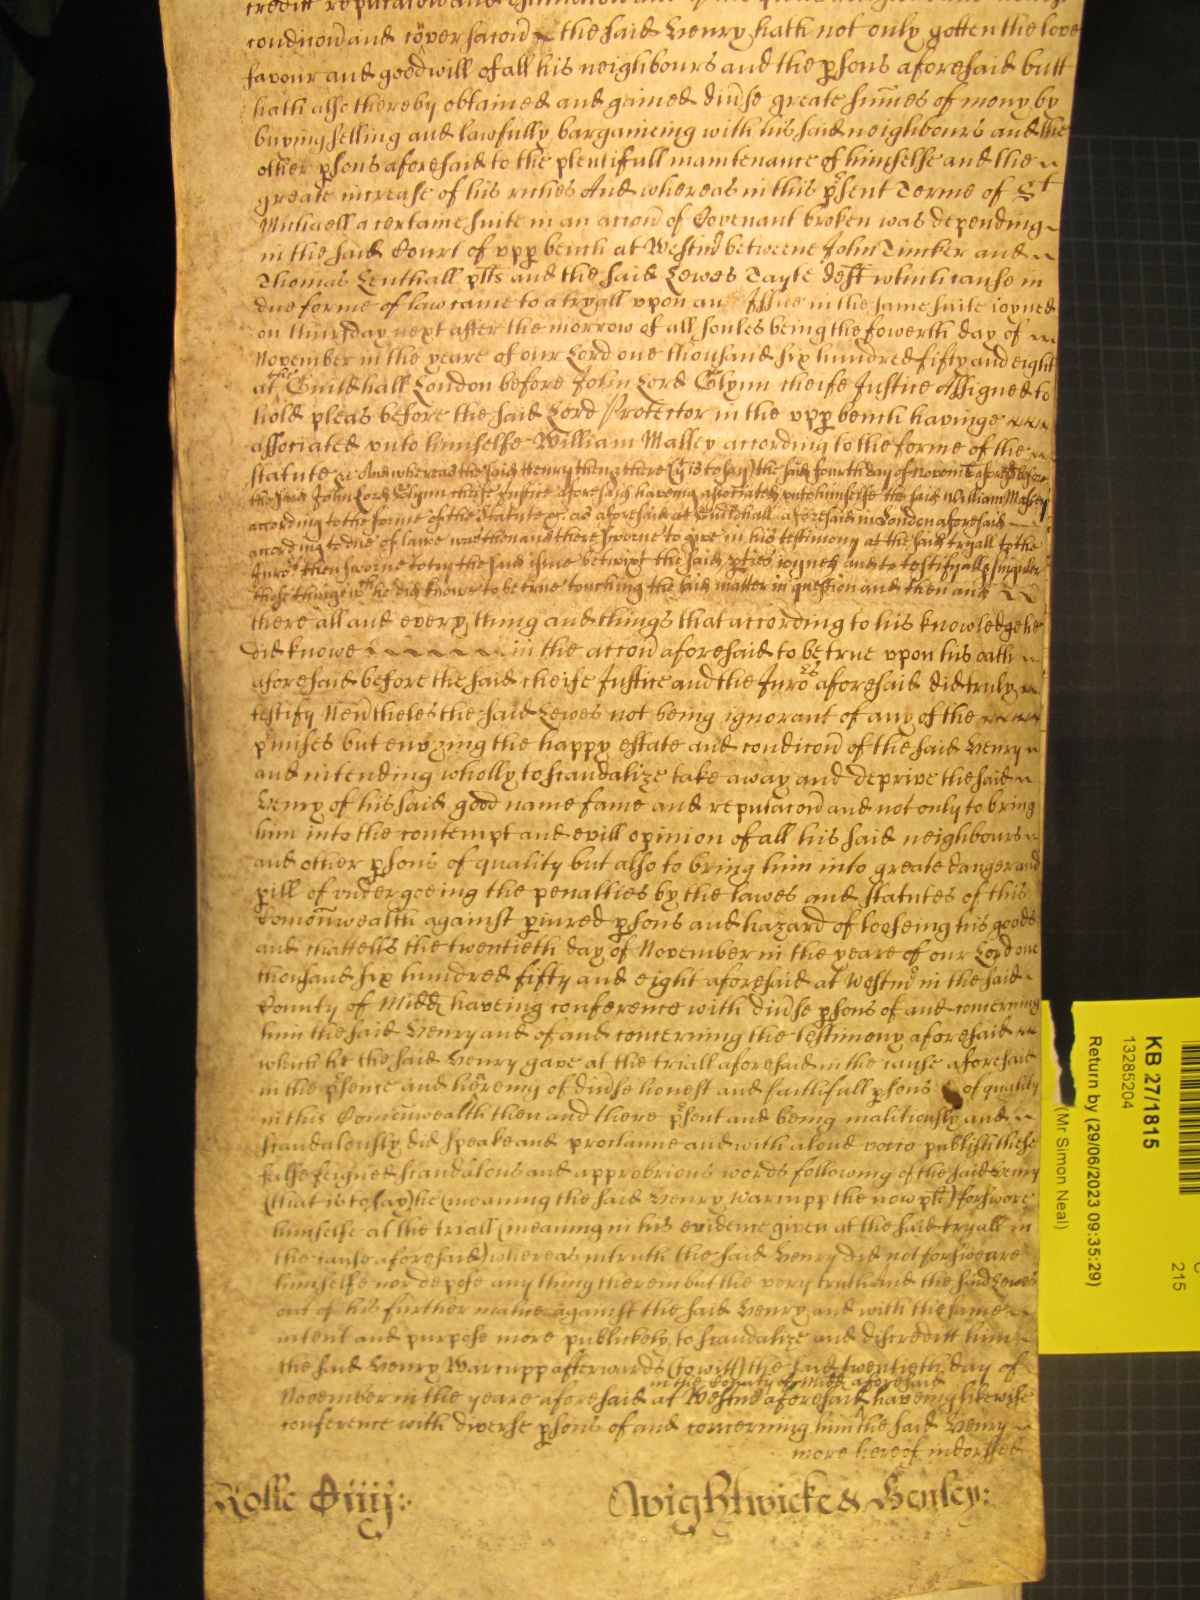 creditt reputacon and
condicon and cõversacon the said Henry hath not only gotten the love
favour and goodwill of all his neighbours and the psons aforesaid butt
hath also thereby obtained and gained divse greate sum̃es of mony by
buying selling and lawfully bargaineing with his said neighbours and the
other psons aforesaid to the plentifull maintenance of himselfe and the
greate increase of his riches And whereas in this psent Terme of St
Michaell a certaine suite in an accon of Covenant broken was depending
in the said Court of vpp bench at Westm̃ betweene John Tincker and
Thomas Lenthall plts and the said Lewes Tayte deft which cause in
due forme of law came to a tryall vpon an issue in the same suite ioyned
on thursday next after the morrow of all soules being the fowerth day of
November in the yeare of our Lord one thousand six hundred fifty and eight
at the Guildhall London before John Lord Glynn cheife Justice Assigned to
hold pleas before the said Lord Protector in the vpp bench havinge
associated vnto himselfe William Massey according to the forme of the
statute &c And whereas the said Henry then & there (that is to say) the said fourth day of Novem aforesaid before
the said John Lord Glynn cheife Justice aforesaid haveing associated vnto himselfe the said William Massey
according to the forme of the Statute &c as aforesaid at Guildhall aforesaid in London aforesaid
according to due of lawe was then and there sworne to give in his testimony at the said tryall to the
Juro rs then sworne to try the said issue betwixt the said pties ioyned and to testify all & singuler
those things wch he did knowe to be true touching the said matter in question and then and
there all and every thing and things that according to his knowledge he
did knowe in the accon aforesaid to be true vpon his oath
aforesaid before the said cheife Justice and the Juro rs aforesaid did truly
testify Nevtheles the said Lewes not being ignorant of any of the
pmises but envying the happy estate and condicon of the said Henry
and intending wholly to scandalize take away and deprive the said
Henry of his said good name fame and reputacon and not only to bring
him into the contempt and evill opinion of all his said neighbours
and other psons of quality but also to bring him into greate danger and
pill of vndergoeing the penalties by the lawes and statutes of this
Com̃onwealth against piured psons and hazard of looseing his goods
and chattells the twentieth day of November in the yeare of our Lord one
thousand six hundred fifty and eight aforesaid at Westm̃ in the said
County of Midd haveing conference with divse psons of and concerning
him the said Henry and of and concerning the testimony aforesaid
which he the said Henry gave at the triall aforesaid in the cause aforesaid
in the psence and heareing of divse honest and faithfull psons of quality
in this Com̃onwealth then and there psent and being malitiously and
scandalously did speake and proclaime and with a loud voice publish these
false feigned scandalous and approbrious words following of the said Henry
(that is to say) he (meaning the said Henry Warcupp the now plt) forswore
himselfe at the triall (meaning in his evidence given at the said tryall in
the cause aforesaid) whereas in truth the said Henry did not forsweare
himselfe nor depose any thing therein but the very truth And the said Lewes
out of his further malice against the said Henry and with the same
intent and purpose more publickely to scandalize and discreditt him
the said Henry Warcupp afterwards (to witt) the said twentieth day of
in the County of Midd aforesaid
November in the yeare aforesaid at Westm̃ aforesaid haveing likewise
conference with diverse psons of and concerning him the said Henry
more hereof indorsed
Rolle Oiiij:
Wightwicke & Henley:
KB 27/1815
13285204
Return by (29/06/2023 09:35:29)
(Mr Simon Neal)
215